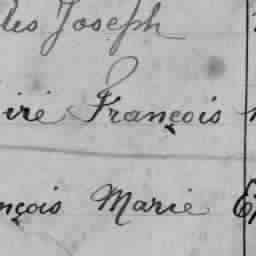 les Joseph
iré François
nçois Marie